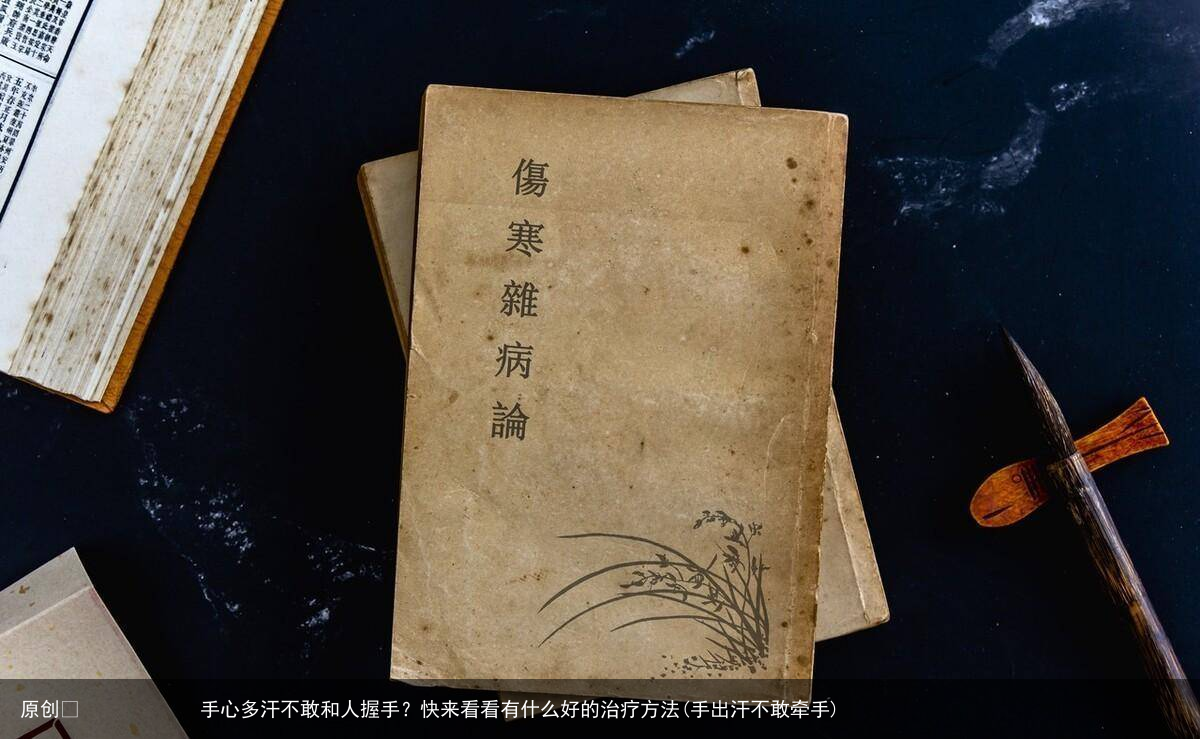 傷寒雜病論
原创□ 手心多汗不敢和人握手？快来看看有什么好的治疗方法(手出汗不敢牵手)